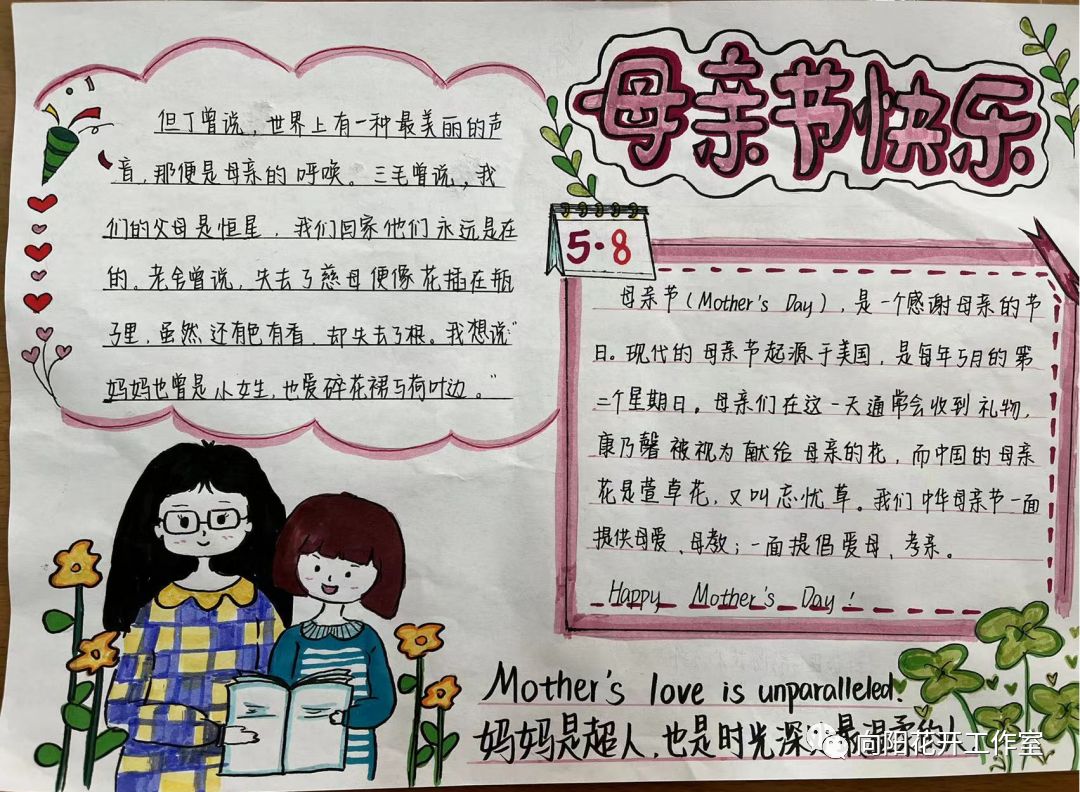 母亲节快乐
但丁曾说，世界上有一种最美丽的声
音，那便是母亲的呼唤。三毛曾说，我
们的父母是恒星，我们回家他们永远是在
的。老舍曾说，失去了慈母便像花插在瓶
子里，虽然还有色有看，却失去了根。我想说“
妈妈也曾是小女生，也爱碎花裙与荷叶边。”
5·8
母亲节（Mother's Day），是一个感谢母亲的节
日。现代的母亲节起源于美国，是每年5月的第
二个星期日。母亲们在这一天通常会收到礼物，
康乃馨被视为献给母亲的花，而中国的母亲
花是萱草花，又叫忘忧草。我们中华母亲节一面
提供母爱、母教；一面提倡爱母、孝亲。
Happy Mother's Day！
Mother's love is unparalleled.
妈妈是超人，也是时光深
尚阳花开工作室